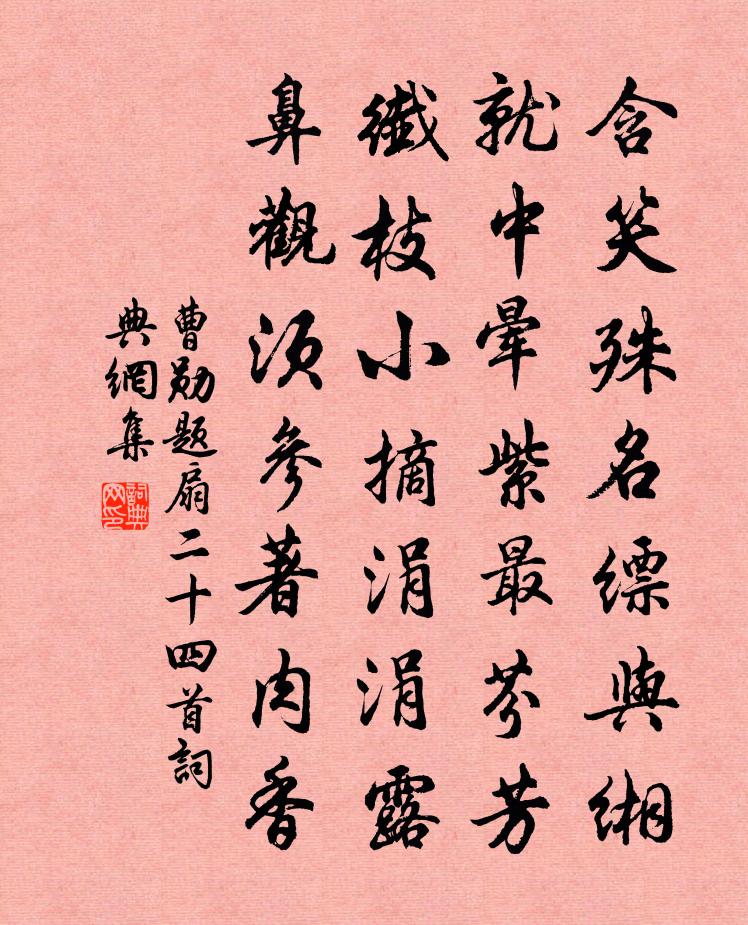 含笑殊名縹與緗
就中暈紫最芬芳
纖枝小摘涓涓露
鼻觀須參著肉香
曹勛題扇二十四首詞
典網集
詞典
网印